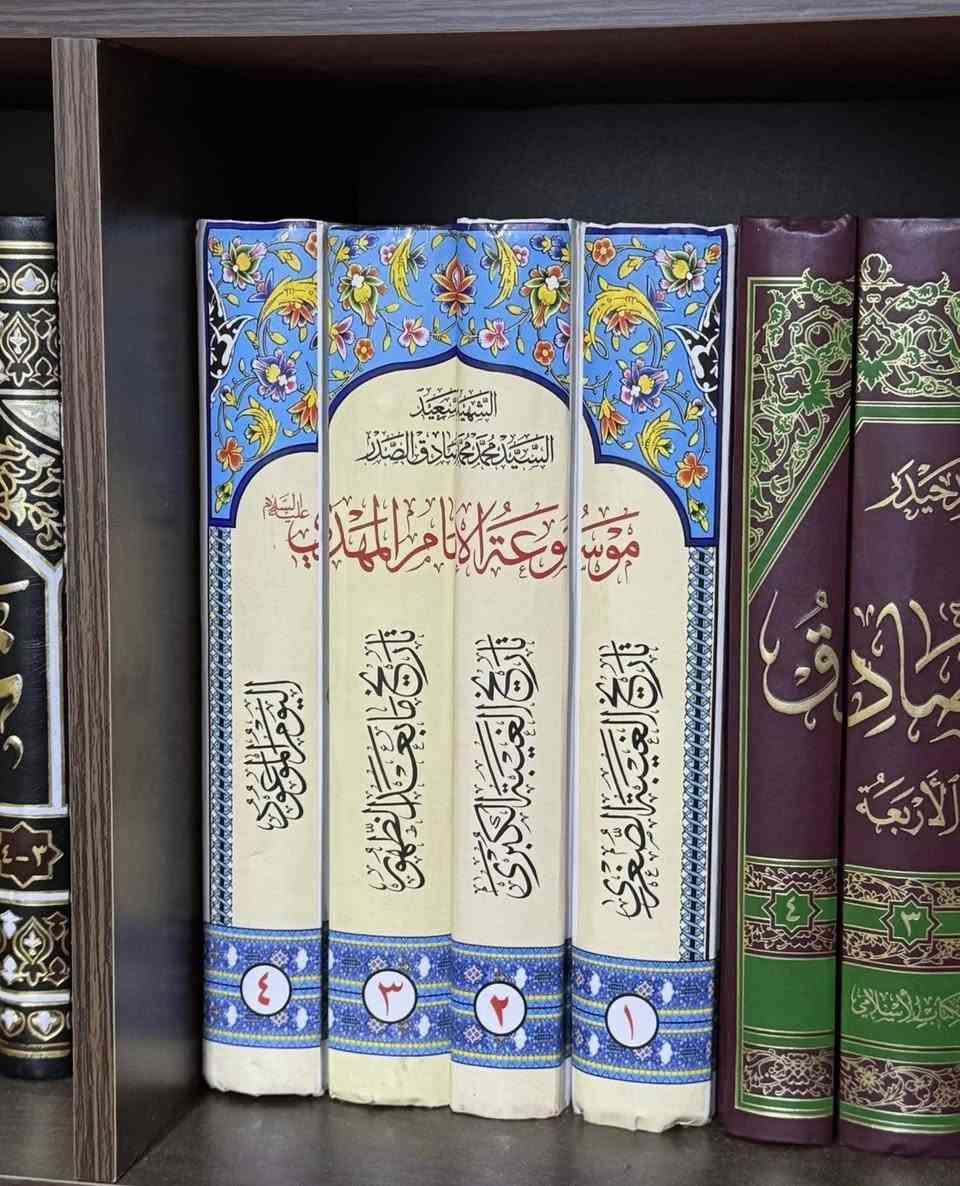 الشهيد السعيد
السيد محمد محمد صادق الصدر
موسوعة الإمام المهدي عليه السلام
تاريخ الغيبة الصغرى
١
تاريخ الغيبة الكبرى
٢
تاريخ ما بعد الظهور
٣
اليوم الموعود
٤
حيدر
صادق
الأربعة
٤
٣
الكتاب الإسلامي
٣-٤